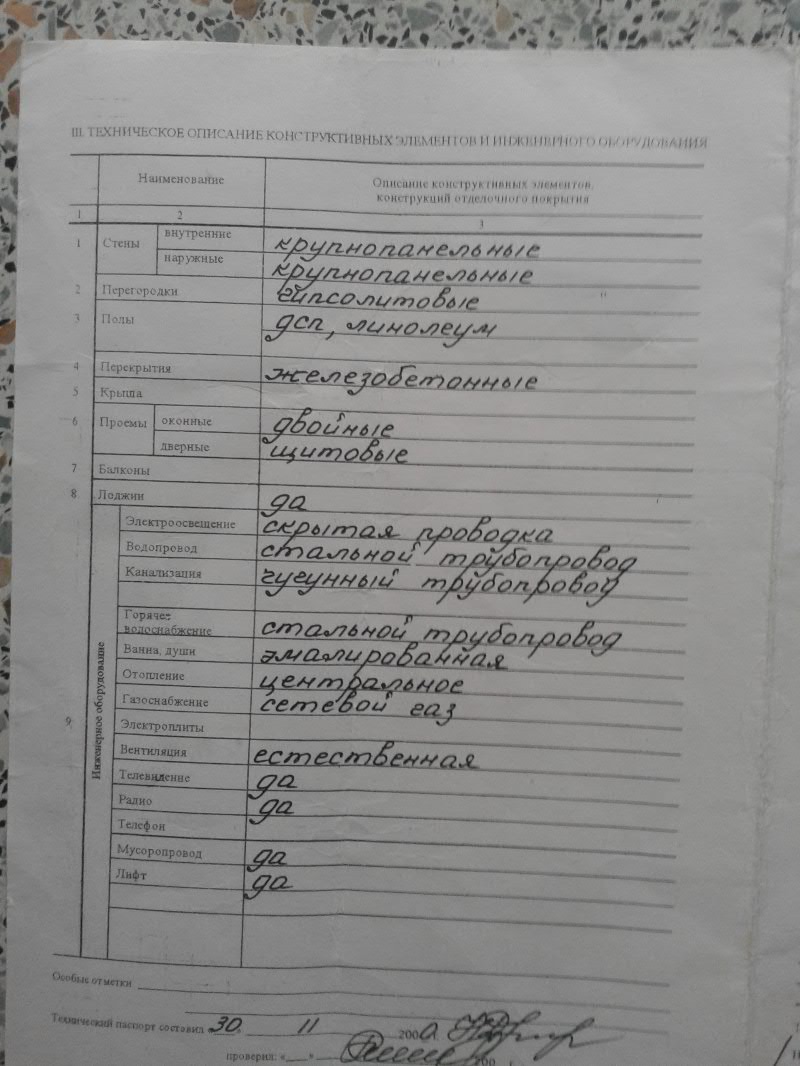 III. ТЕХНИЧЕСКОЕ ОПИСАНИЕ КОНСТРУКТИВНЫХ ЭЛЕМЕНТОВ И ИНЖЕНЕРНОГО ОБОРУДОВАНИЯ
Наименование
Описание конструктивных элементов,
конструкций отделочного покрытия
1 2 3
1 Стены внутренние крупнопанельные
наружные крупнопанельные
2 Перегородки гипсолитовые
3 Полы дсп, линолеум
4 Перекрытия железобетонные
5 Крыша
6 Проемы оконные двойные
дверные щитовые
7 Балконы
8 Лоджии да
9 Инженерное оборудование
Электроосвещение скрытая проводка
Водопровод стальной трубопровод
Канализация чугунный трубопровод
Горячее
водоснабжение стальной трубопровод
Ванна, души эмалированная
Отопление центральное
Газоснабжение сетевой газ
Электроплиты
Вентиляция естественная
Телевидение да
Радио да
Телефон
Мусоропровод да
Лифт да
Особые отметки
Технический паспорт составил «30» 11 200
проверил: « » 200 г.